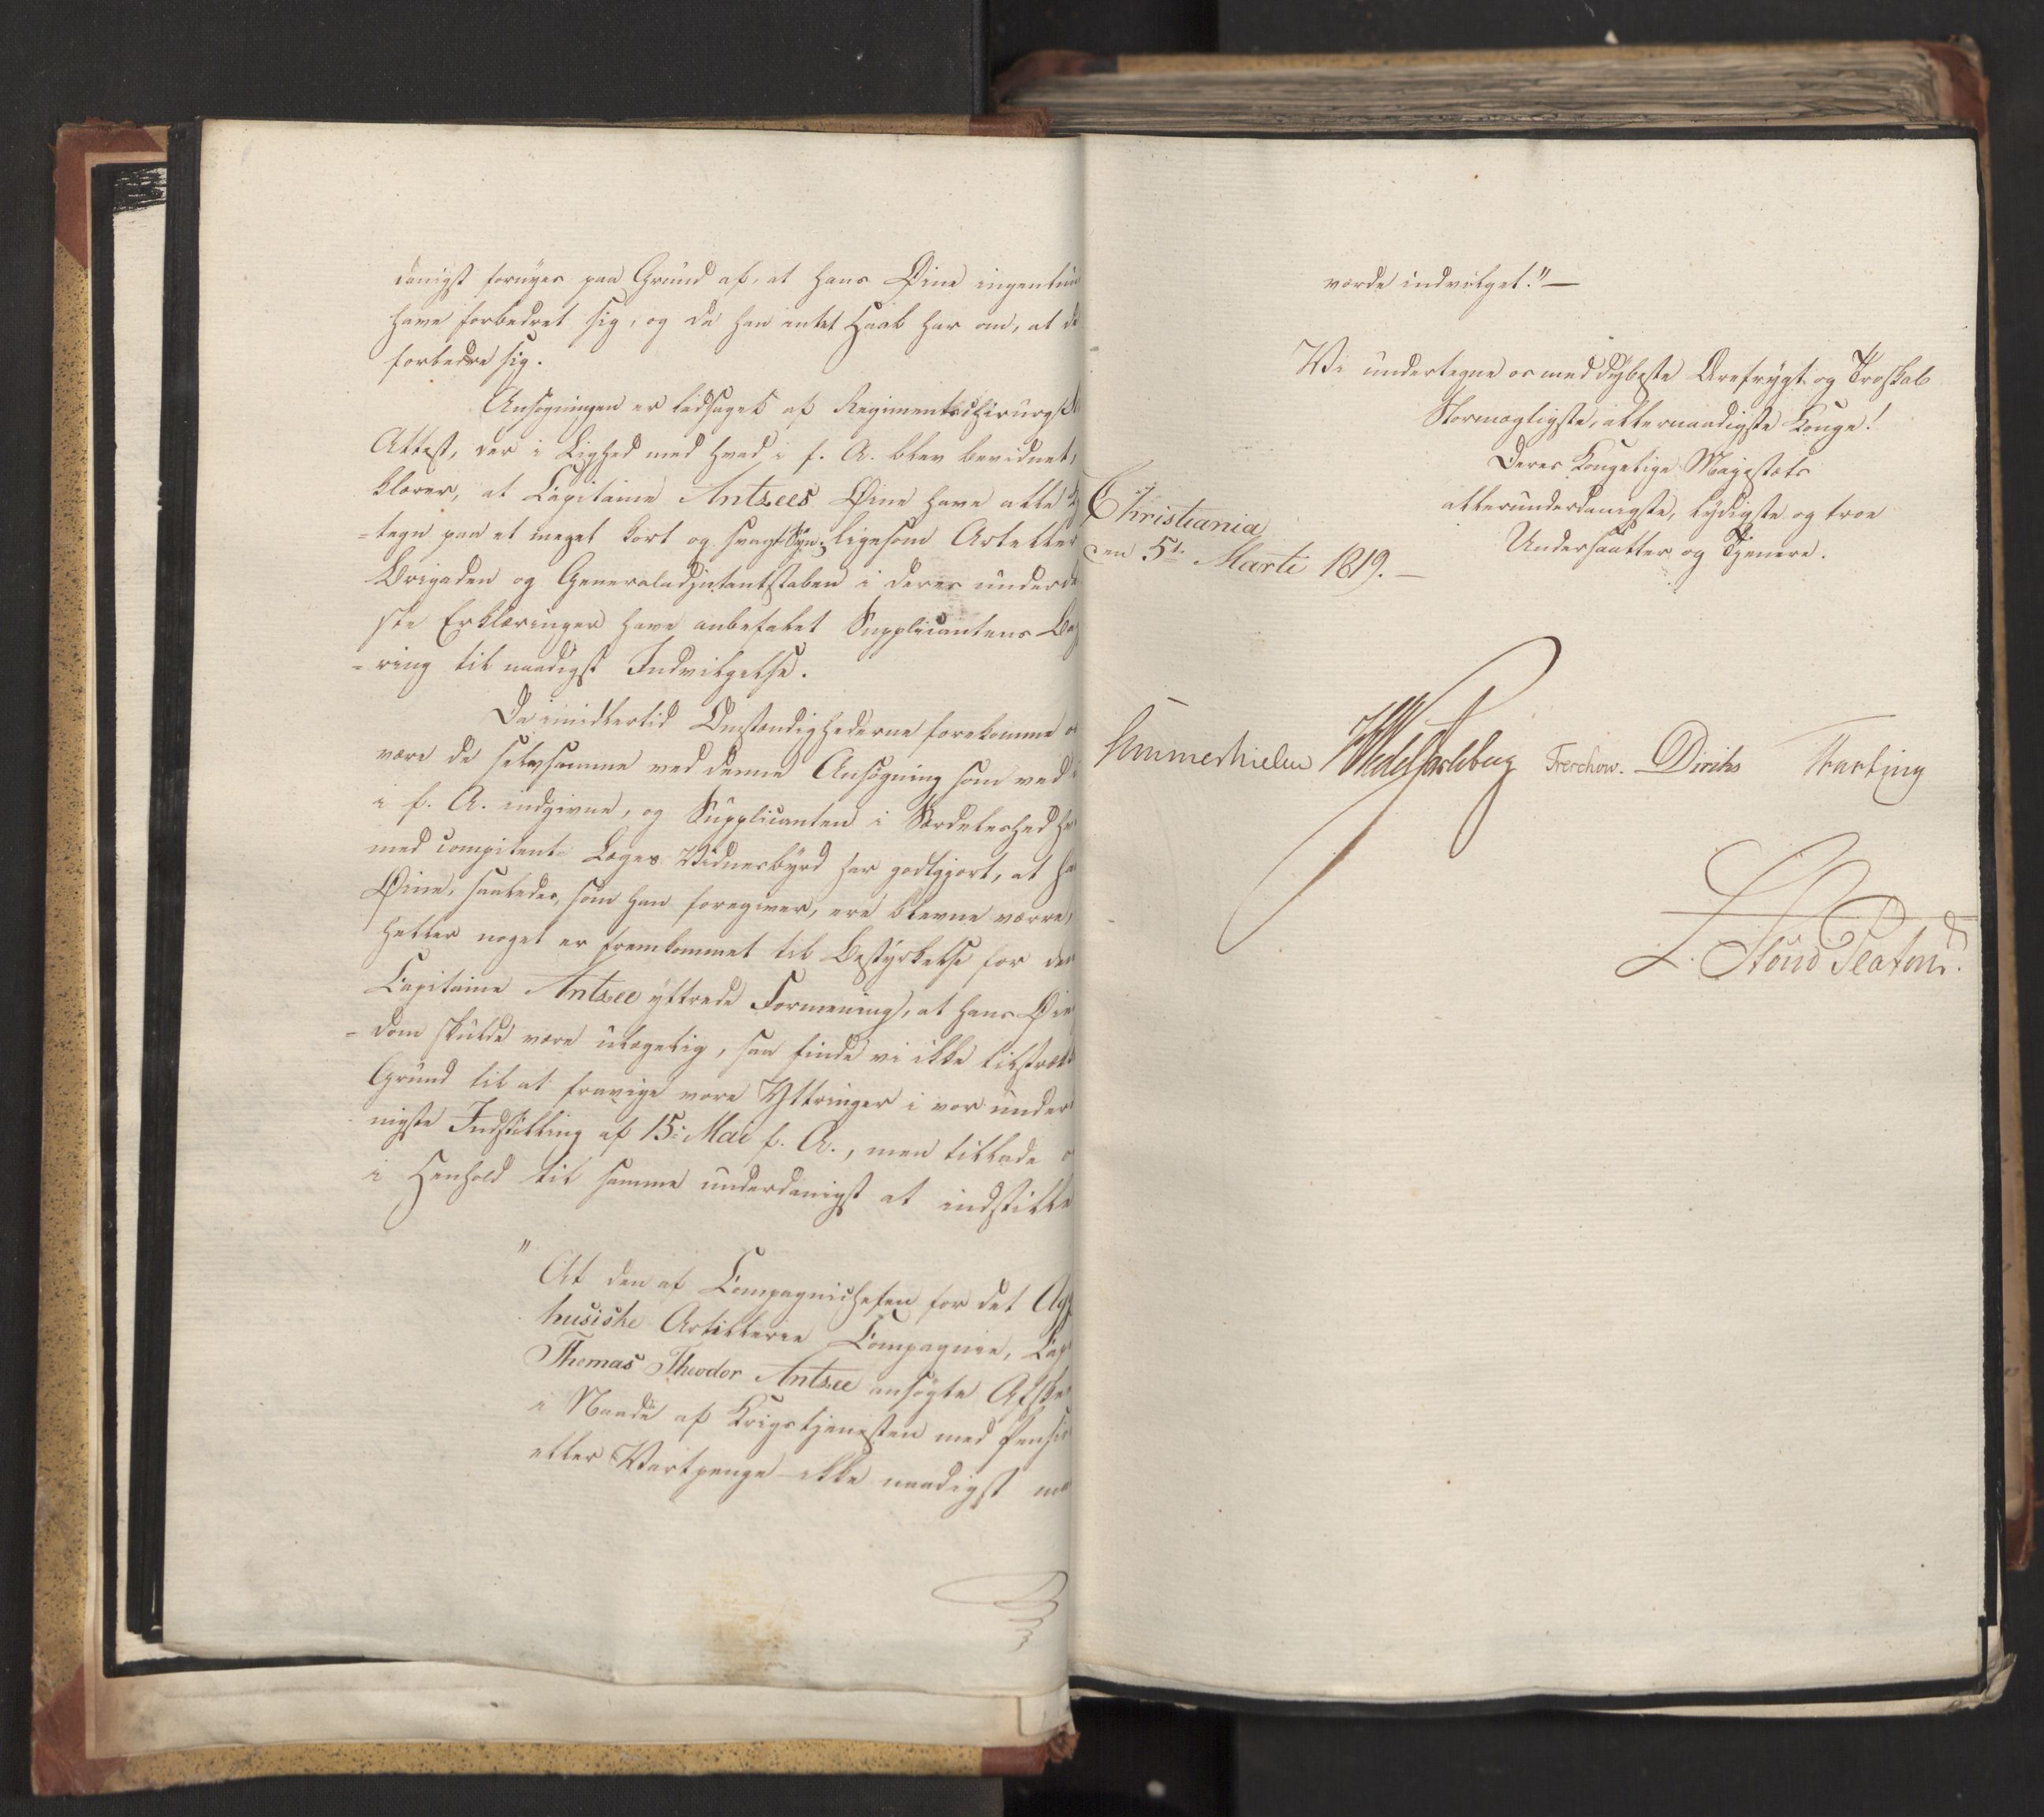 danigst fornyes paa Grund af, at hans Øine ingenlun
have forbedret sig, og da han intet Haab har om, at de
forbedre sig.
Ansøgningen er ledsaget af Regimentschirurgs
Attest, der i Lighed med hvad i f. A. blev bevidnet,
klarer, at Capitaine Antzees Øine have alle
=tegn paa et meget kort og svagt Syn; ligesom Artiller
Brigaden og Generaladjutantstaben i deres underda
ste Erklæringer have anbefalet Supplicantens Beg
=ring til naadigst Indvilgelse.
Da imidlertid Omstændighederne forekomme o
være de selvsamme ved denne Ansøgning som ved
i f. A. indgivne, og Supplicanten i Særdeleshed
med competent Læges Vidnesbyrd har godtgjort, at ha
Øine, saaledes, som han foregiver, ere blevne værre,
heller noget er fremkommet til Bestyrkelse for den
Capitaine Antzee yttrede Formening, at hans Øie
=dom skulde være ulægelig, saa finde vi ikke tilstræk
Grund til at fravige vore Yttringer i vor under
nigste Indstilling af 15: Mai f. A., men tillade o
i Henhold til samme underdanigst at indstille
"At den af Compagniechefen for det Agg
huusiske Artillerie Compagnie, Cap
Thomas Theodor Antzee ansøgte Afske
i Naade af Krigstjenesten med Pensio
eller Vartpenge ikke naadigst ma
vorde indvilget."—
Vi undertegne os med dybeste Ærefrygt og Troskab
Stormægtigste, allernaadigste Konge!
Deres Kongelige Majestæts
allerunderdanigste, lydigste og troe
Undersaatter og Tjenere.
Christiania
den 5te Marti 1819.—
Sommerhielm Wedel Jarlsberg Treschow. Diriks Fasting
L. Stoud Platou.